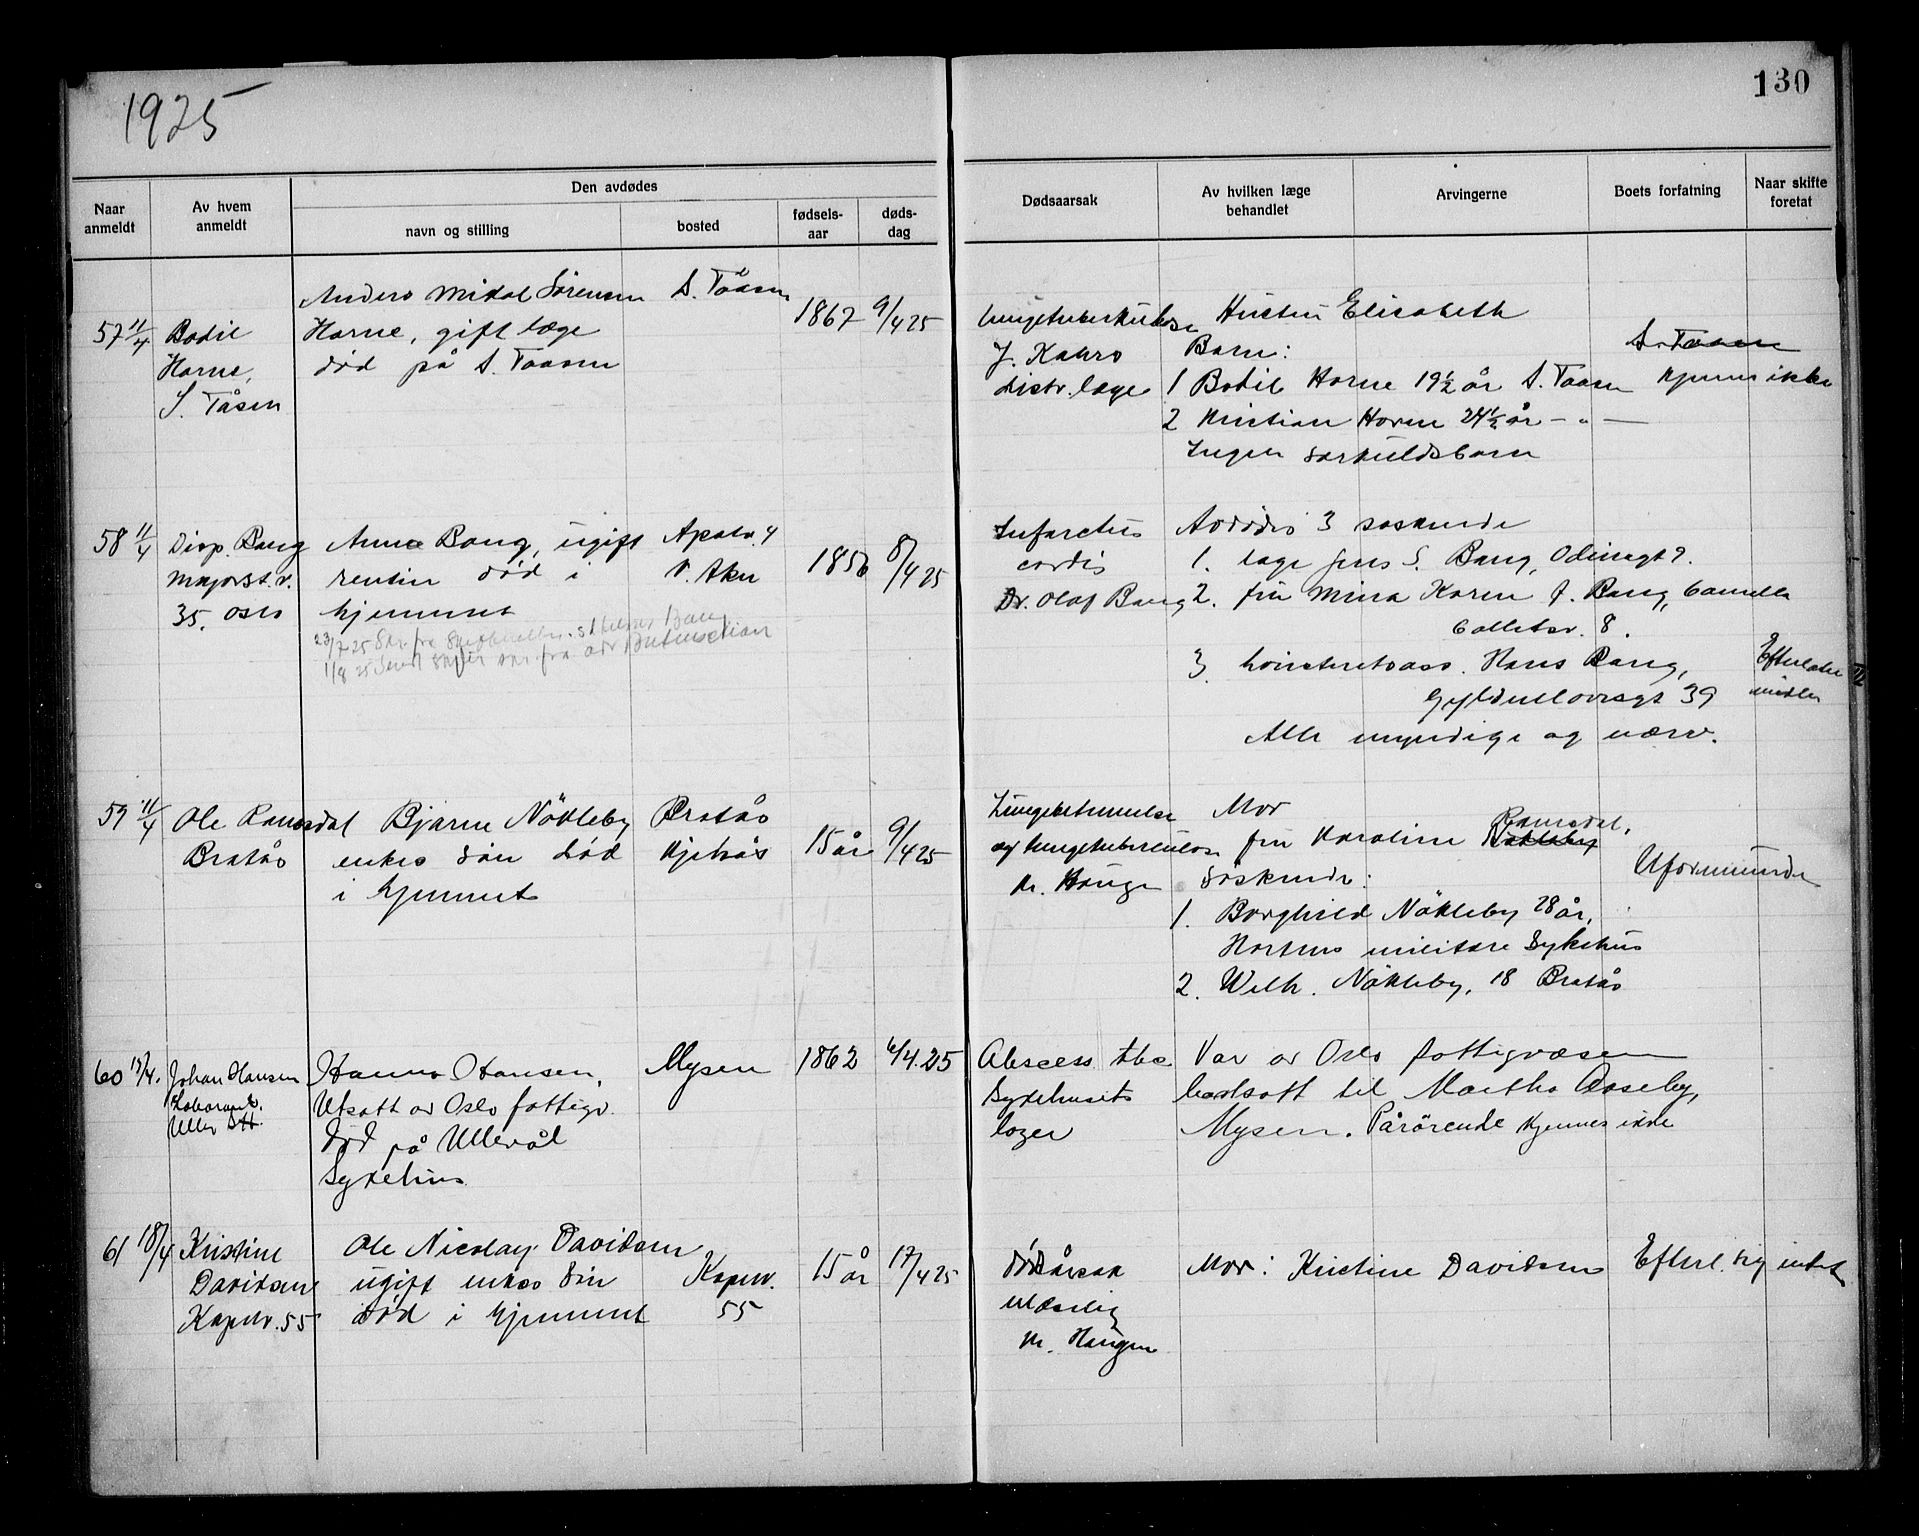 1925
130
Den avdødes
Naar anmeldt
Av hvem anmeldt
navn og stilling
bosted
fødsels-aar
døds-dag
Dødsaarsak
Av hvilken læge behandlet
Arvingerne
Boets forfatning
Naar skifte foretat
57 11/4
Bodil
Horne,
S. Tåsen
Anders Mikal Sørensen
Horne, gift læge
død på S. Taasen
S. Tåasen
1867
9/4 25
Lungetuberkulose
J. Kahrs
distr. læge
Hustru Elisabeth
Barn:
1 Bodil Horne 19½ år S. Taasen
2 Kristian Horne 24½ år — " —
Ingen særkuldsbarn
S. Taasen
kjennes ikke
58 11/4
Disp. Bang
Majorst.v.
35. Oslo
Anna Bang, ugift
rentier død i
hjemmet
Apalv. 4
V. Aker
1856
8/4 25
Infarctus
cordis
Dr. Olaf Bang
Avdødes 3 søskende
1. læge Jens S. Bang, Odinsgt 9.
2. fru Mina Karen f. Bang, Camilla
Colletsv. 8.
3. Hans Bang,
Gyldenløvesgt 39
Alle myndige og nærv.
Efterlater
midler
59 11/4
Ole Ramsdal
Bråtås
Bjarne Nökleby
enkes sön död
i hjemmet
Bråtås
Kjelsås
15 år
9/4 25
Lungebetennelse
og lungetuberculose
Dr. Hauge
Mor
fru Karoline Nökleby Ramsdal,
Söskende:
1. Borghild Nökleby 28 år,
Hortens militære Sykehus
2. Wilh. Nökleby, 18 Bråtås
Uformuende
60 15/4.
Johan Hansen
Laborant.
Ullev. S.H.
Hanna Hansen,
Utsatt av Oslo fattigv.
Död på Ullevål
Sykehus
Mysen
1862
6/4.25
Abscess tbc
Sykehusets
læger
Var av Oslo fattigvæsen
bortsatt til Martha Aaseby,
Mysen. Pårörende kjennes ikke
61 18/4
Kristine
Davidsen
Kapellv. 55
Ole Nicolay Davidsen
ugift enkes Sön
död i hjemmet
Kapellv.
55
15 år
17/4 25
dödsårsak
ulæselig
Dr. Haugen
Mor: Kristine Davidsen
Efterl. sig intet